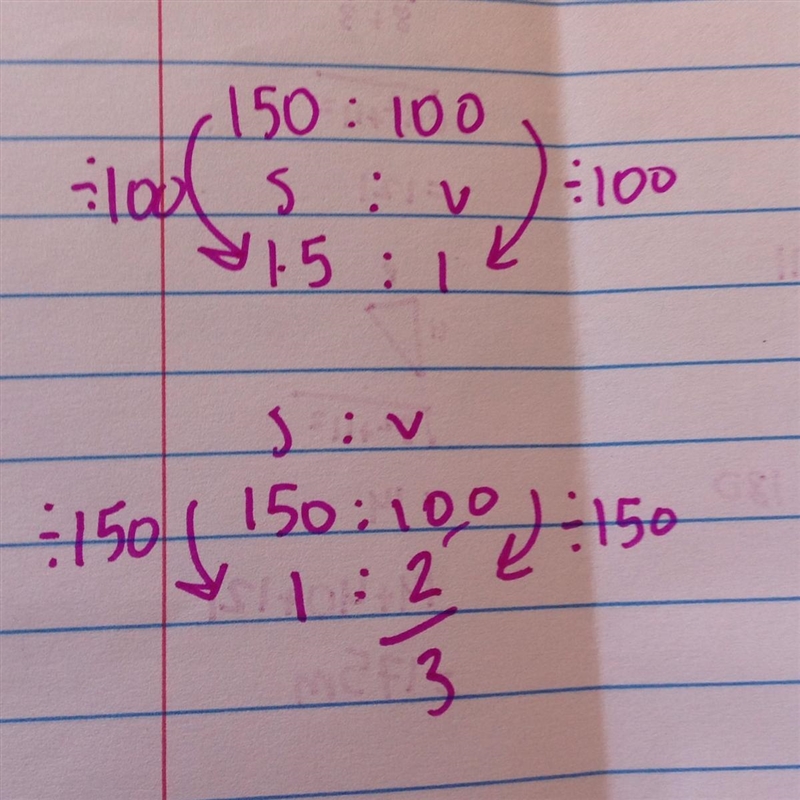 150 : 100
÷100 s : v ÷100
1.5 : 1
s : v
÷150 150 : 100 ÷150
1 : 2/3